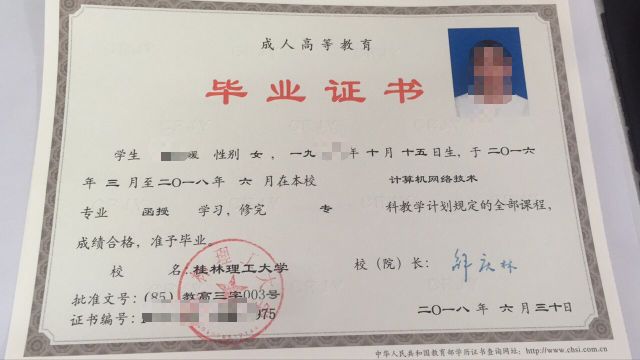 成人高等教育
毕业证书
学生 媛 性别 女，一九 年十月十五日生，于二〇一六
年 三 月至二〇一八年 六 月在本校 计算机网络技术
专业 函授 学习，修完 专 科教学计划规定的全部课程，
成绩合格，准予毕业。
校 名：桂林理工大学 校（院）长：解庆林
批准文号：（85）教高三字003号
证书编号： 075 二〇一八年 六 月三十日
中华人民共和国教育部学历证书查询网址：http://www.chsi.com.cn